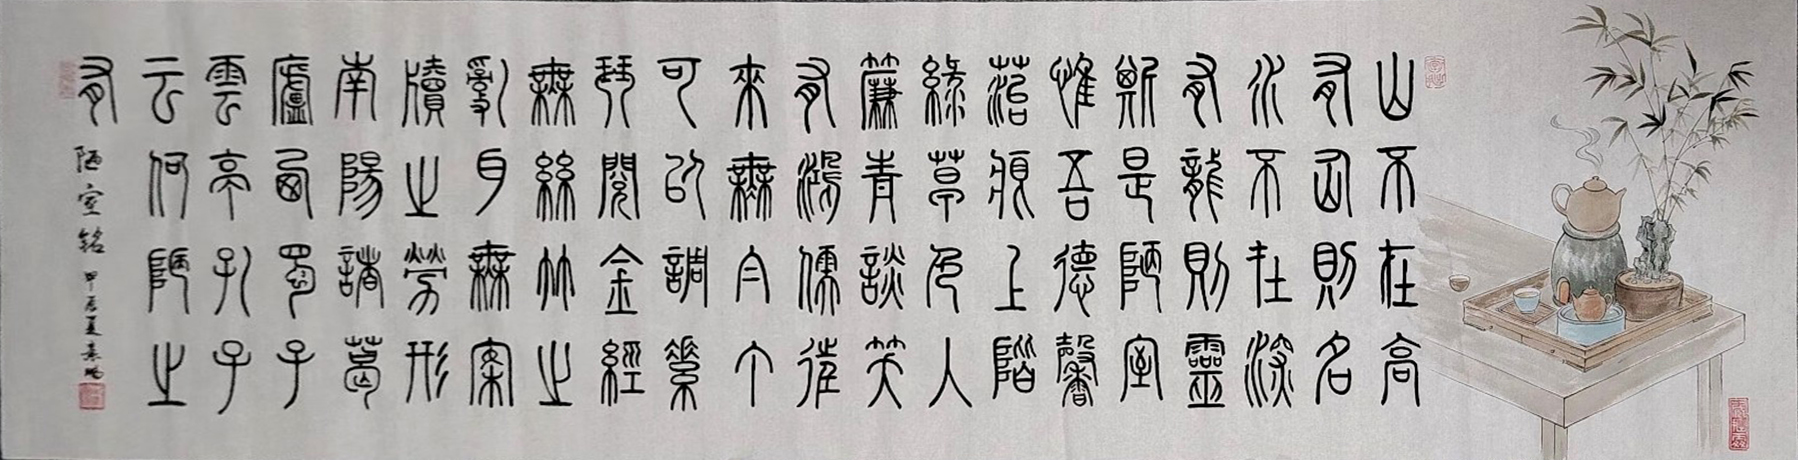 山不在高
有仙則名
水不在深
有龍則靈
斯是陋室
惟吾德馨
苔痕上階
綠草色入
簾青談笑
有鴻儒往
來無白丁
可以調素
琴閱金經
無絲竹之
亂耳無案
牘之勞形
南陽諸葛
廬西蜀子
雲亭孔子
云何陋之
有 陋室銘 甲辰夏